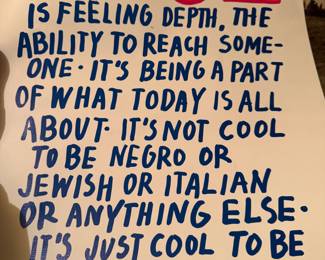 IS FEELING DEPTH, THE
ABILITY TO REACH SOME-
ONE· IT'S BEING A PART
OF WHAT TODAY IS ALL
ABOUT· IT'S NOT COOL
TO BE NEGRO OR
JEWISH OR ITALIAN
OR ANYTHING ELSE·
IT'S JUST COOL TO BE